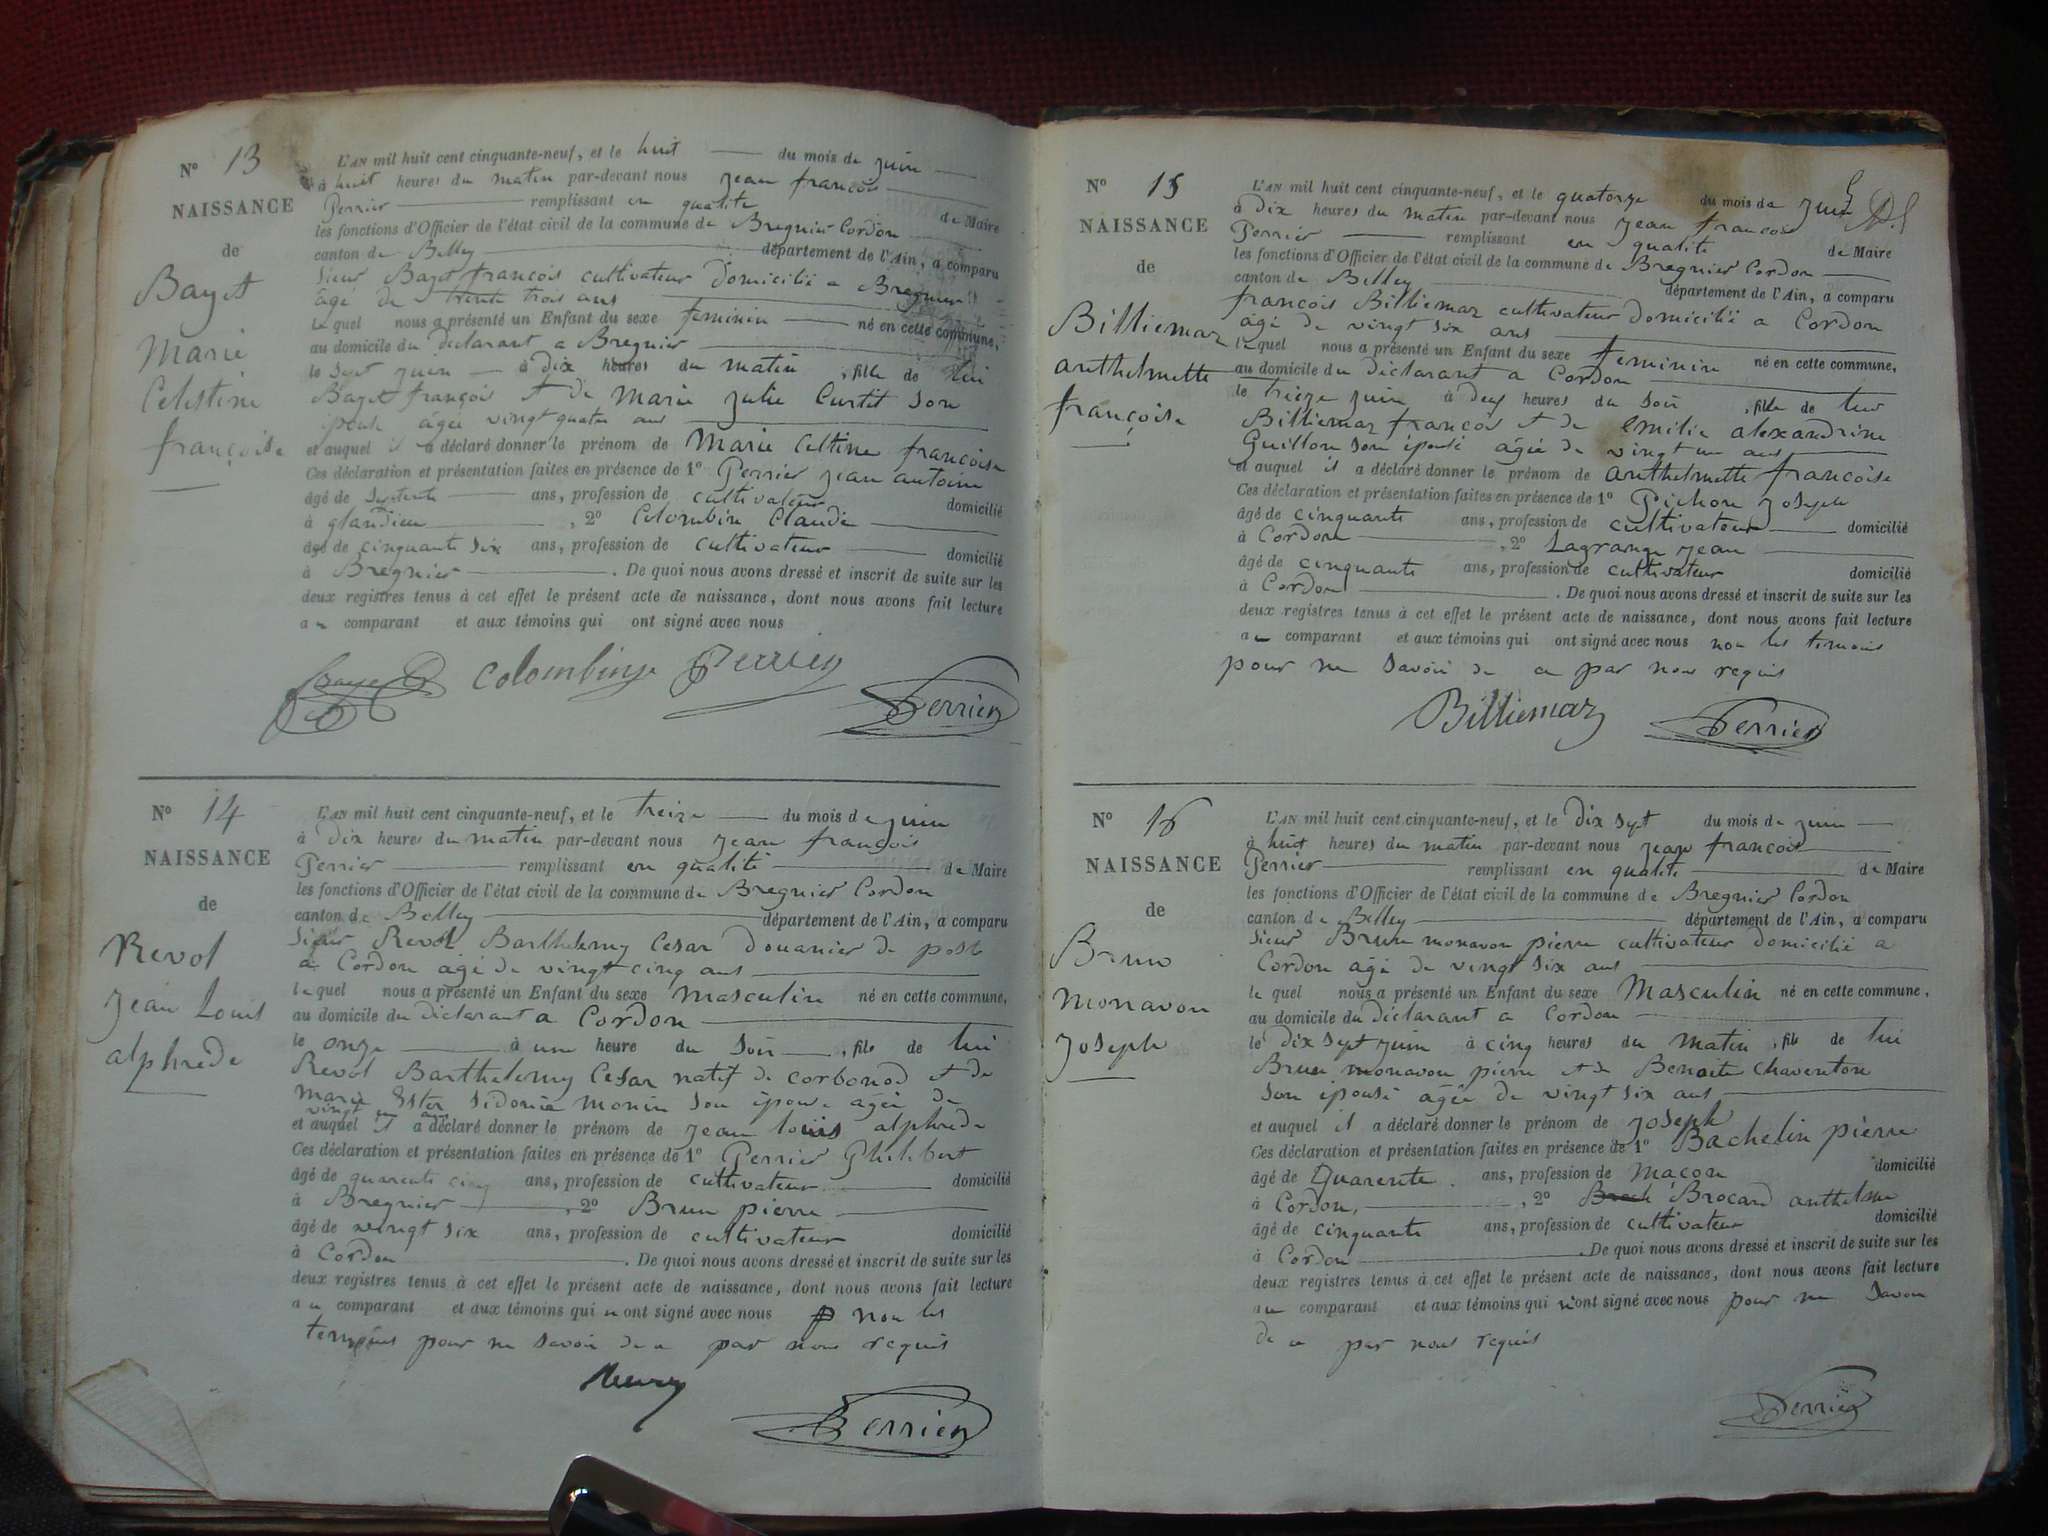 N° 13
NAISSANCE
de
Bayet
Marie
Celestine
françoise
L'AN mil huit cent cinquante-neuf, et le huit du mois de juin
à huit heures du matin par-devant nous jean françois
Perrier remplissant en qualité de Maire
les fonctions d'Officier de l'état civil de la commune de Bregnier Cordon
canton de Belley département de l'Ain, a comparu
Sieur Bayet françois cultivateur domicilié a Bregnier
âgé de trente trois ans
lequel nous a présenté un Enfant du sexe feminin né en cette commune,
au domicile du declarant a Bregnier
le sept juin à dix heures du matin, fille de lui
Bayet françois et de Marie julie Curtet son
épouse âgée vingt quatre ans
et auquel il a déclaré donner le prénom de Marie Celtine françoise
Ces déclaration et présentation faites en présence de 1° Perrier jean antoine
âgé de ans, profession de cultivateur domicilié
à glandieu, 2° Colombin Claude
âgé de cinquante six ans, profession de cultivateur domicilié
à Bregnier. De quoi nous avons dressé et inscrit de suite sur les
deux registres tenus à cet effet le présent acte de naissance, dont nous avons fait lecture
au comparant et aux témoins qui ont signé avec nous
Perrier
N° 14
NAISSANCE
de
Revol
jean Louis
alphrede
L'AN mil huit cent cinquante-neuf, et le treize du mois de juin
à dix heures du matin par-devant nous jean françois
Perrier remplissant en qualité de Maire
les fonctions d'Officier de l'état civil de la commune de Bregnier Cordon
canton de Belley département de l'Ain, a comparu
Sieur Revol Barthelemy Cesar douanier de poste
a Cordon âgé de vingt cinq ans
lequel nous a présenté un Enfant du sexe masculin né en cette commune,
au domicile du declarant a Cordon
le onze à une heure du soir, fils de lui
Revol Barthelemy Cesar natif de corbonod et de
marie Ester Sidonie monin son épouse agée de
vingt un ans
et auquel il a déclaré donner le prénom de jean louis alphrede
Ces déclaration et présentation faites en présence de 1° Perrier Philibert
âgé de quarante cinq ans, profession de cultivateur domicilié
à Bregnier, 2° Brun pierre
âgé de vingt six ans, profession de cultivateur domicilié
à Cordon. De quoi nous avons dressé et inscrit de suite sur les
deux registres tenus à cet effet le présent acte de naissance, dont nous avons fait lecture
au comparant et aux témoins qui ont signé avec nous non les
temoins pour ne savoir de ce par nous requis
Perrier
N° 15
NAISSANCE
de
Billiemaz
anthelmette
françoise
L'AN mil huit cent cinquante-neuf, et le quatorze du mois de juin
à dix heures du matin par-devant nous jean françois
Perrier remplissant en qualité de Maire
les fonctions d'Officier de l'état civil de la commune de Bregnier Cordon
canton de Belley département de l'Ain, a comparu
françois Billiemaz cultivateur domicilié a Cordon
âgé de vingt six ans
lequel nous a présenté un Enfant du sexe feminin né en cette commune,
au domicile du declarant a Cordon
le treize juin à deux heures du soir, fille de lui
Billiemaz françois et de emilie alexandrine
Guillon son épouse âgée de vingt un ans
et auquel il a déclaré donner le prénom de anthelmette françoise
Ces déclaration et présentation faites en présence de 1° Pichon joseph
âgé de cinquante ans, profession de cultivateur domicilié
à Cordon, 2° Lagrange jean
âgé de cinquante ans, profession de cultivateur domicilié
à Cordon. De quoi nous avons dressé et inscrit de suite sur les
deux registres tenus à cet effet le présent acte de naissance, dont nous avons fait lecture
au comparant et aux témoins qui ont signé avec nous non les temoins
pour ne savoir de ce par nous requis
Billiemaz Perrier
N° 16
NAISSANCE
de
Brun
monavon
joseph
L'AN mil huit cent cinquante-neuf, et le dix sept du mois de juin
à huit heures du matin par-devant nous jean françois
Perrier remplissant en qualité de Maire
les fonctions d'Officier de l'état civil de la commune de Bregnier Cordon
canton de Belley département de l'Ain, a comparu
Sieur Brun monavon pierre cultivateur domicilié a
Cordon âgé de vingt six ans
lequel nous a présenté un Enfant du sexe Masculin né en cette commune,
au domicile du declarant a Cordon
le dix sept juin à cinq heures du matin, fils de lui
Brun monavon pierre et de Benoite Chaventon
son épouse âgée de vingt six ans
et auquel il a déclaré donner le prénom de joseph
Ces déclaration et présentation faites en présence de 1° Bachelin pierre
âgé de Quarente ans, profession de maçon domicilié
à Cordon, 2° Brocard anthelme
âgé de cinquante ans, profession de cultivateur domicilié
à Cordon. De quoi nous avons dressé et inscrit de suite sur les
deux registres tenus à cet effet le présent acte de naissance, dont nous avons fait lecture
au comparant et aux témoins qui n'ont signé avec nous pour ne savoir
de ce par nous requis
Perrier